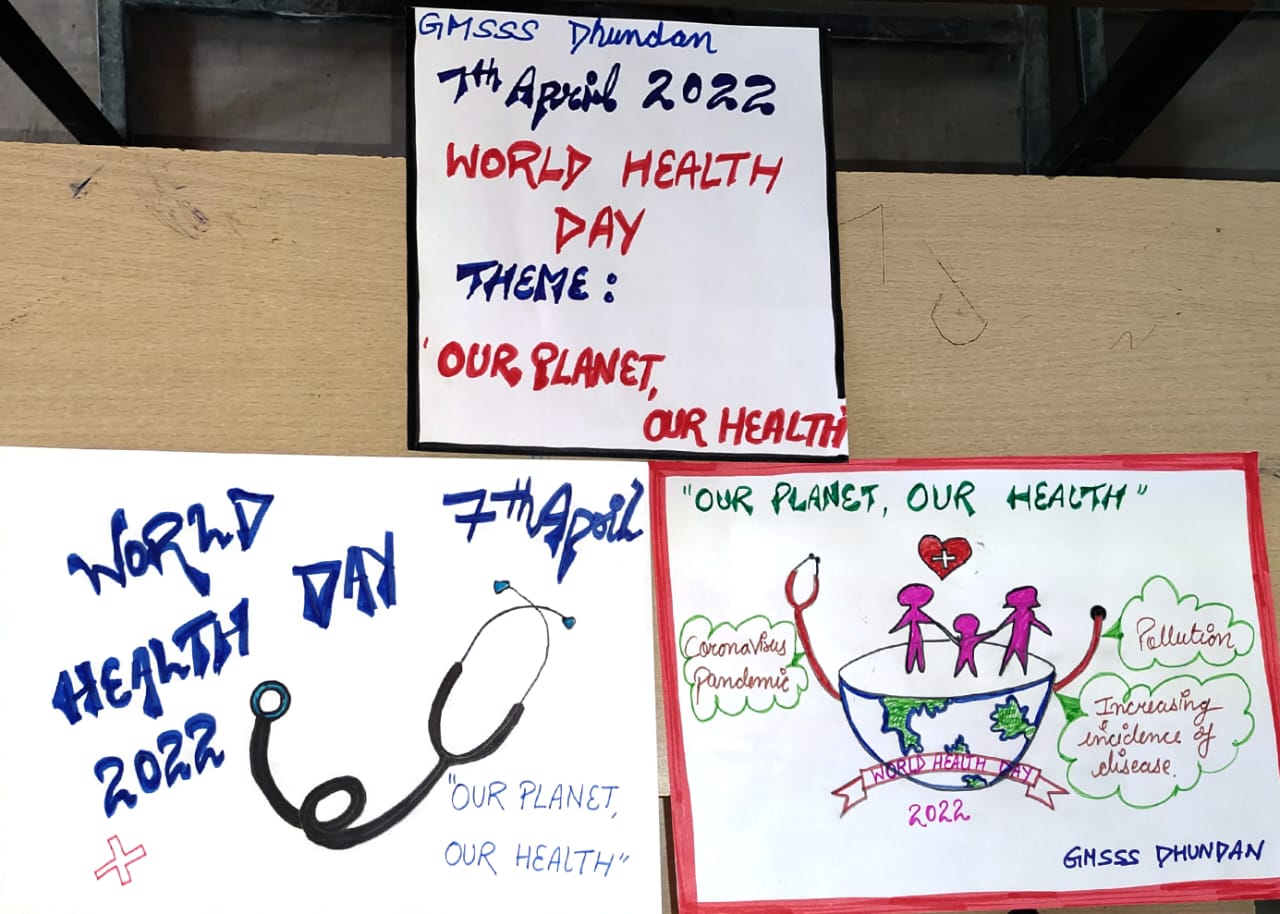 GMSSS Dhundan
7th April 2022
WORLD HEALTH
DAY
THEME :
'OUR PLANET,
OUR HEALTH'
WORLD
HEALTH DAY
2022
7th April
"OUR PLANET,
OUR HEALTH"
"OUR PLANET, OUR HEALTH"
CoronaVirus
pandemic
Pollution
Increasing
incidence of
disease.
WORLD HEALTH DAY
2022
GMSSS DHUNDAN